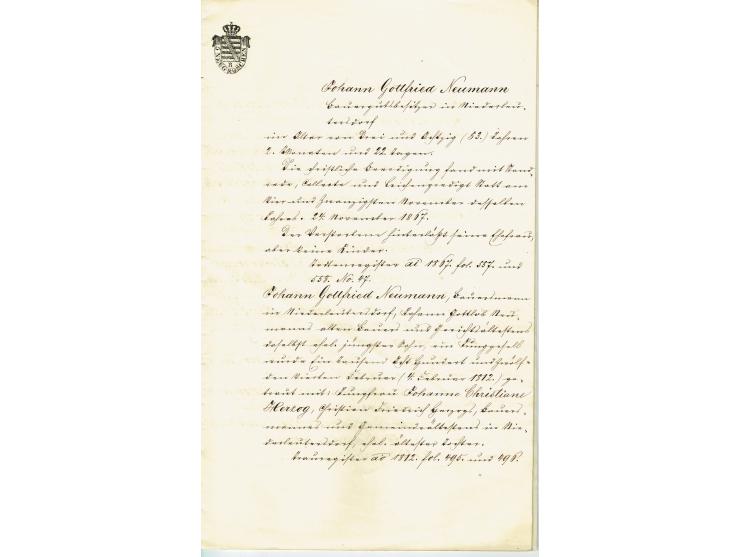 ZWEI NEUGROSCHEN
Johann Gottfried Neumann
Bauergutsbesitzer in Niederleu-
tersdorf
im Alter von Drei und Achtzig (83.) Jahren
2. Monaten und 22. Tagen.
Die christliche Beerdigung fand mit Stand-
rede, Collecte und Leichenpredigt Statt am
Vier und Zwanzigsten November desselben
Jahres. 24. November 1867.
Der Verstorbene hinterläßt seine Ehefrau,
aber keine Kinder.
Todtenregister ad 1867. fol. 557. und
558. No. 47.
Johann Gottfried Neumann, Bauersmann
in Niederleutersdorf, Johann Gottlob Neu-
manns alten Bauers und Gerichtsältestens
daselbst ehel. jüngster Sohn, ein Junggesell
wurde Ein Tausend Acht Hundert und Zwölf
den Vierten Februar (4. Februar 1812.) ge-
traut mit: Jungfrau Johanne Christiane
Herzog, Christian Friedrich Herzogs, Bauers-
mannes und Gemeindeältestens in Nie-
derleutersdorf, ehel. ältester Tochter.
Trauregister ad 1812. fol. 495. und 496.